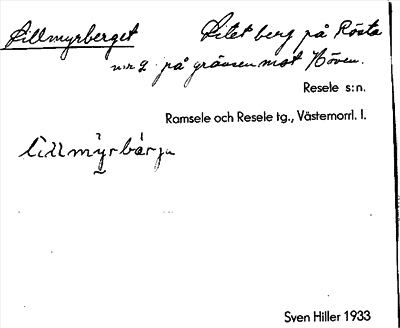 Lillmyrberget Litet berg på Rösta
n:r 2 på gränsen mot Höven.
Resele s:n.
Ramsele och Resele tg., Västernorrl. l.
lillmyrbärju
Sven Hiller 1933